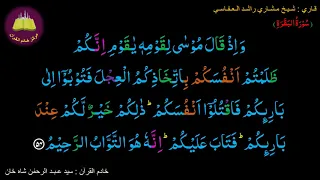 قاري : شيخ مشاري راشد العفاسي
(سُوْرَةُ الْبَقَرَة)
وَاِذْ قَالَ مُوْسٰى لِقَوْمِهٖ يٰقَوْمِ اِنَّكُمْ
ظَلَمْتُمْ اَنْفُسَكُمْ بِاتِّخَاذِكُمُ الْعِجْلَ فَتُوْبُوْٓا اِلٰى
بَارِىِٕكُمْ فَاقْتُلُوْٓا اَنْفُسَكُمْ ؕ ذٰلِكُمْ خَيْرٌ لَّكُمْ عِنْدَ
بَارِىِٕكُمْ ؕ فَتَابَ عَلَيْكُمْ ؕ اِنَّهٗ هُوَ التَّوَّابُ الرَّحِيْمُ
خادم القرآن : سيد عبد الرحمٰن شاه خان